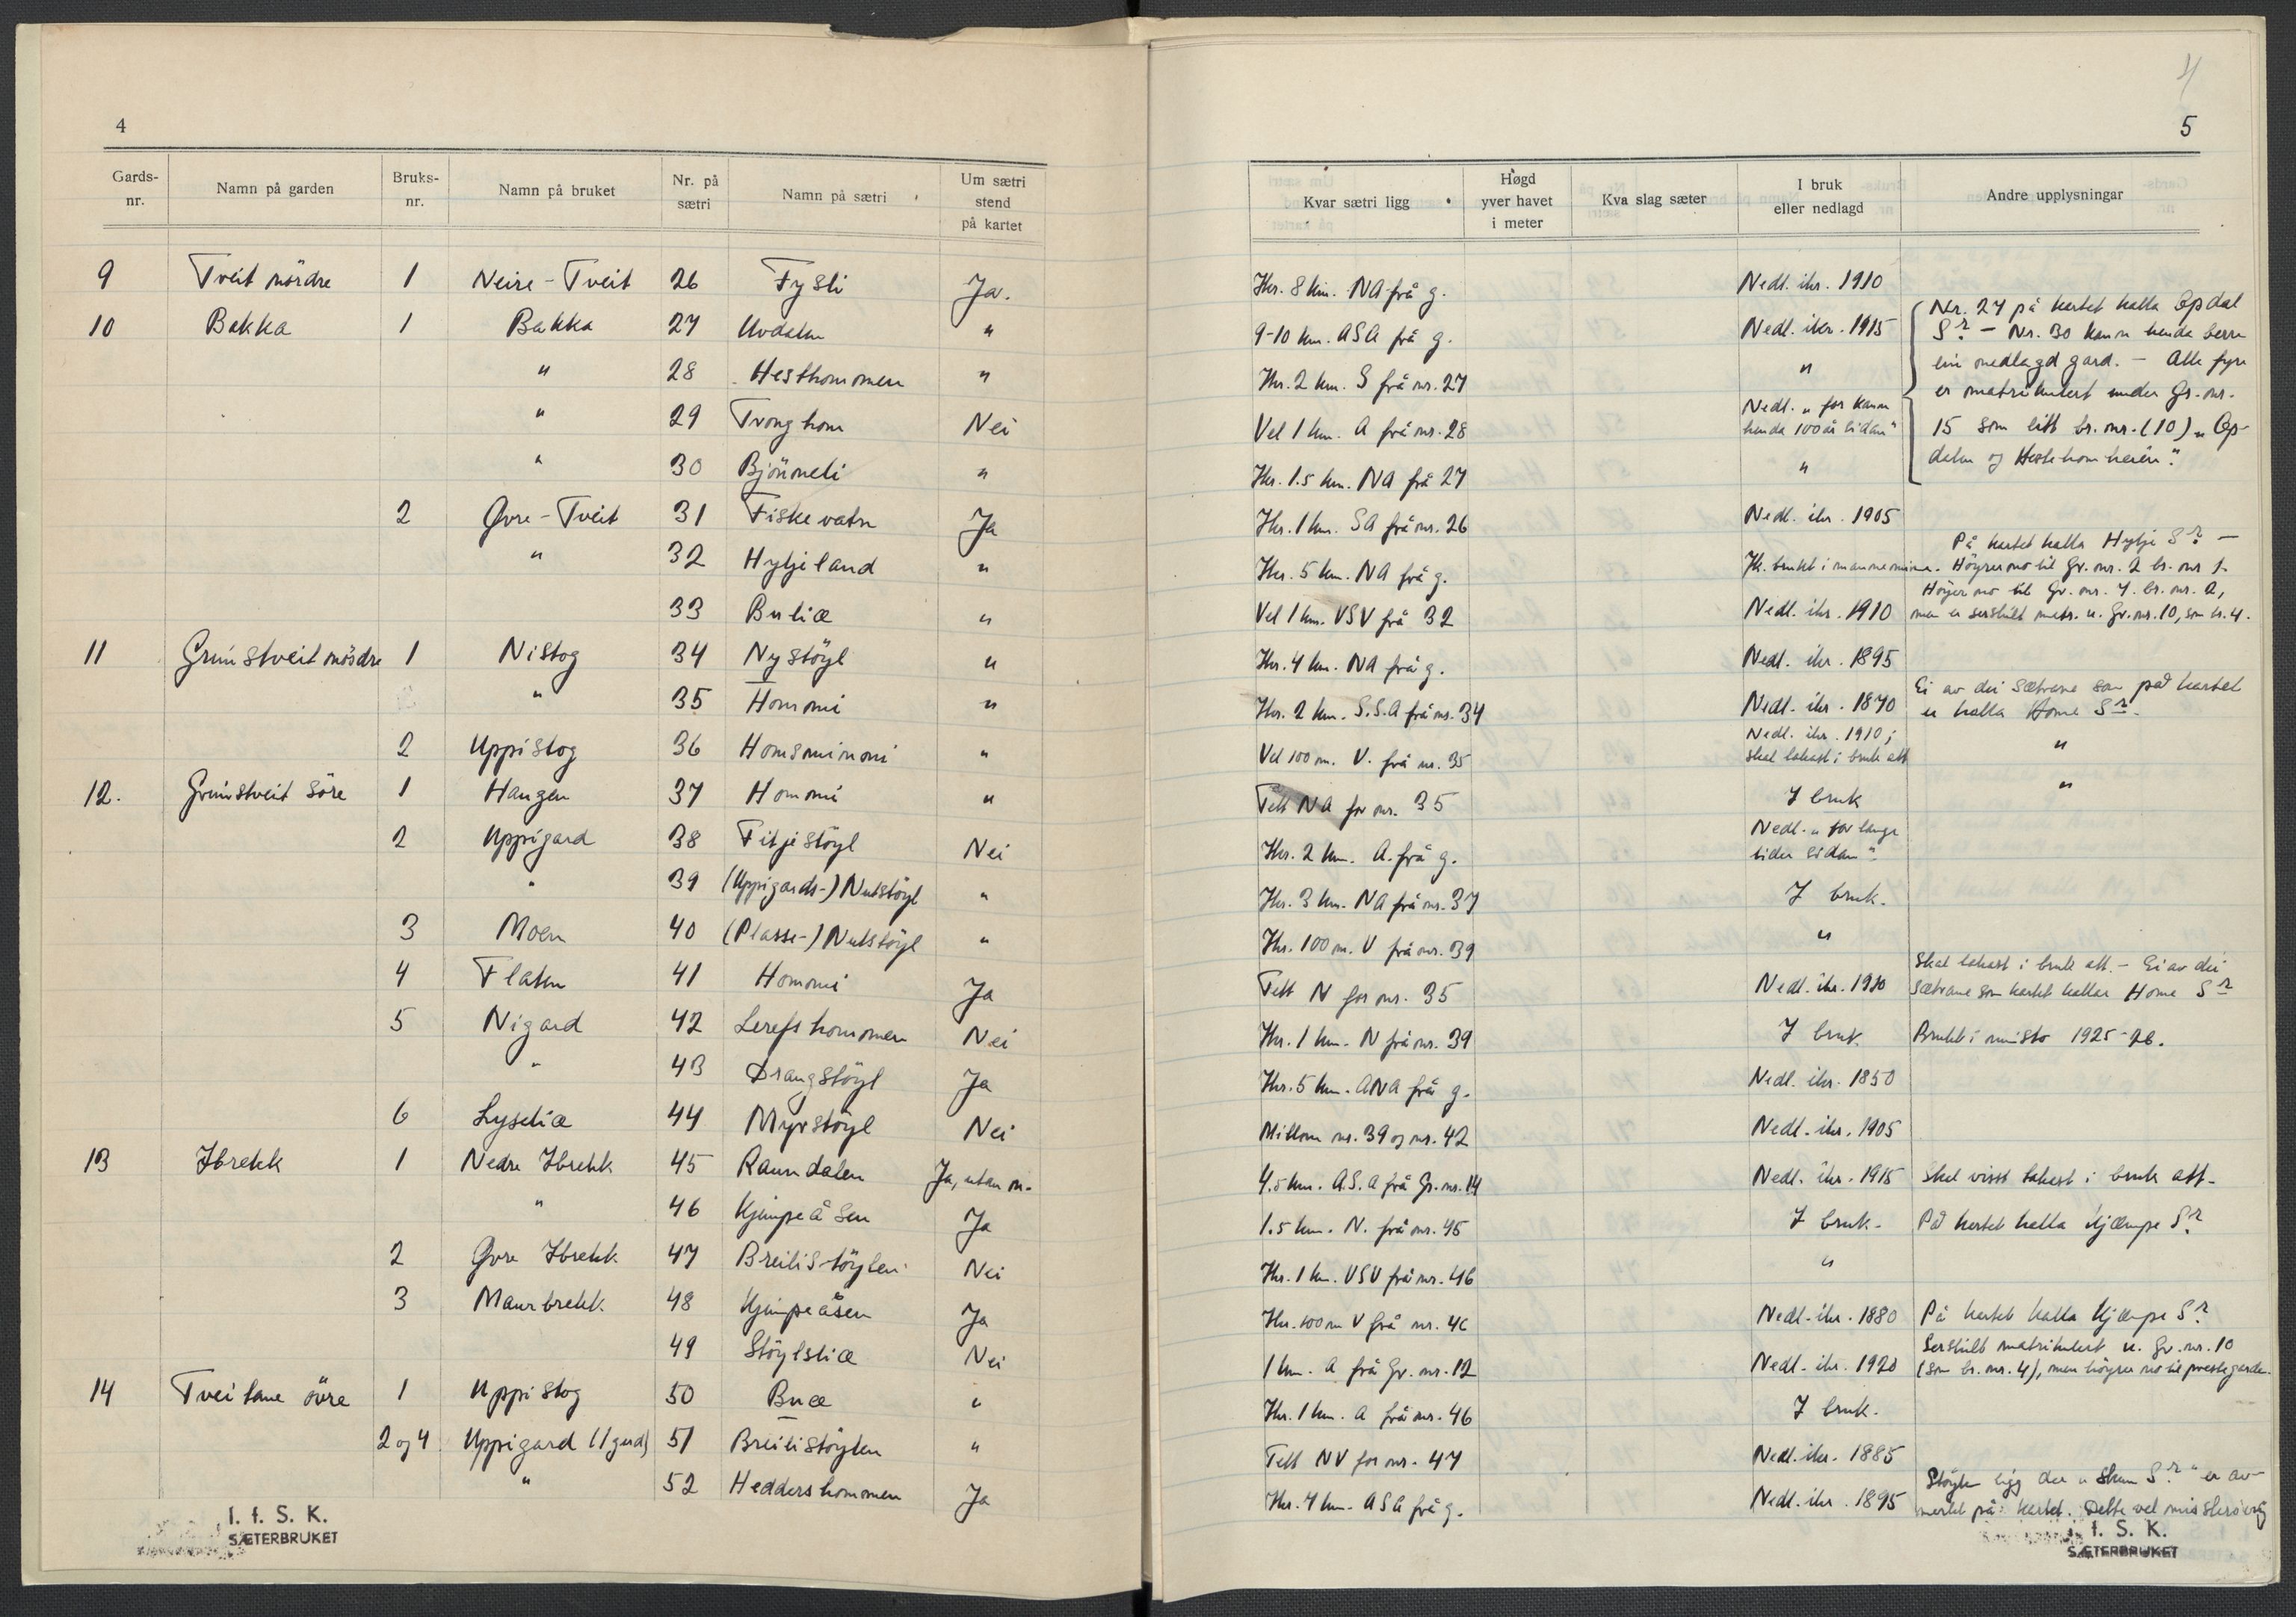 4
Gards-nr. Namn på garden Bruks-nr. Namn på bruket Nr. på sætri Namn på sætri Um sætri stend på kartet
9 Tveit nördre 1 Neire-Tveit 26 Fysli Ja.
10 Bakka 1 Bakka 27 Uvdalen "
" 28 Hesthommen "
" 29 Tronghom Nei
" 30 Bjönneli "
2 Øvre-Tveit 31 Fiskevatn Ja
" 32 Hyljeland "
33 Buliæ "
11 Grunstveit nördre 1 Nistog 34 Nystöyl "
" 35 Hommi "
2 Uppistog 36 Homsminni "
12. Grunstveit söre 1 Haugen 37 Hommi "
2 Uppigard 38 Fitjestöyl Nei
" 39 (Uppigards-) Nutstöyl "
3 Moen 40 (Plasse-) Nutstöyl "
4 Flaten 41 Hommi Ja
5 Nigard 42 Lerefshommen Nei
" 43 Drangstöyl Ja
6 Lyseliæ 44 Myrstöyl Nei
13 Ibrekk 1 Nedre Ibrekk 45 Raundalen Ja, utan n.
" 46 Kjimpeåsen Ja
2 Øvre Ibrekk 47 Breilistöylen Nei
3 Maurbrekk 48 Kjimpeåsen Ja
49 Stöylsliæ Nei
14 Tveitane övre 1 Uppistog 50 Buæ "
2 og 4 Uppigard (1 gard) 51 Breilistöylen "
" 52 Heddershommen Ja
I. f. S. K.
SÆTERBRUKET
4
5
Kvar sætri ligg Høgd yver havet i meter Kva slag sæter I bruk eller nedlagd Andre upplysningar
Ikr. 8 km. NA frå g. Nedl. ikr. 1910
9-10 km. ASA frå g. Nedl. ikr. 1915 Nr. 27 på kartet kalla Opdal
Sr. - Nr. 30 kann henda berre
Ikr. 2 km. S frå nr. 27 " ein nedlagd gard. - Alle fyre
er matrikulert under Gr. nr.
Vel 1 km. A frå nr. 28 Nedl. "for kann henda 100 år sidan" 15 som eitt br. nr. (10) "Op-
Ikr. 1.5 km. NA frå 27 " dalen og Hestehomheien".
Ikr. 1 km. SA frå nr. 26 Nedl. ikr. 1905
På kartet kalla Hylje Sr. -
Ikr. 5 km. NA frå g. Ik. brukt i manneminne. Höyrer no til Gr. nr. 2 br. nr 1.
Höyrer no til Gr. nr. 7. br. nr. 2,
Vel 1 km. VSV frå 32 Nedl. ikr. 1910 men er serskilt matr. u. Gr. nr. 10, som br. 4.
Ikr. 4 km. NA frå g. Nedl. ikr. 1895
Ei av dei sætrane som på kartet
Ikr. 2 km. S.S.A frå nr. 34 Nedl. ikr. 1870 er kalla Home Sr.
Vel 100 m. V. frå nr. 35 Nedl. ikr. 1910; skal takast i bruk att "
Tett NA for nr. 35 I bruk "
Ikr. 2 km. A. frå g. Nedl. "for lange tider sidan".
Ikr. 3 km. NA frå nr. 37 I bruk.
Ikr. 100 m. V frå nr. 39 "
Skal takast i bruk att. - Ei av dei
Tett N for nr. 35 Nedl. ikr. 1920 sætrane som kartet kallar Home Sr
Ikr. 1 km. N frå nr. 39 I bruk Brukt i minsto 1925-26.
Ikr. 5 km. ANA frå g. Nedl. ikr. 1850
Millom nr. 39 og nr. 42 Nedl. ikr. 1905
4.5 km. A.S.A frå Gr. nr. 14 Nedl. ikr. 1915 Skal visst takast i bruk att.
1.5 km. N. frå nr. 45 I bruk. På kartet kalla Kjæmpe Sr.
Ikr. 1 km. VSV frå nr. 46 "
Ikr. 100 m V frå nr. 46 Nedl. ikr. 1880 På kartet kalla Kjæmpe Sr.
Serskilt matrikulert u. Gr. nr. 10
1 km. A frå Gr. nr. 12 Nedl. ikr. 1920 (som br. nr. 4), men höyrer no til prestegarden.
Ikr. 1 km. A frå nr. 46 I bruk.
Tett NV for nr. 47 Nedl. ikr. 1885
Stöylen ligg der " Sr." er av-
Ikr. 4 km. ASA frå g. Nedl. ikr. 1895 merkt på kartet. Dette vel
I. f. S. K.
SÆTERBRUKET